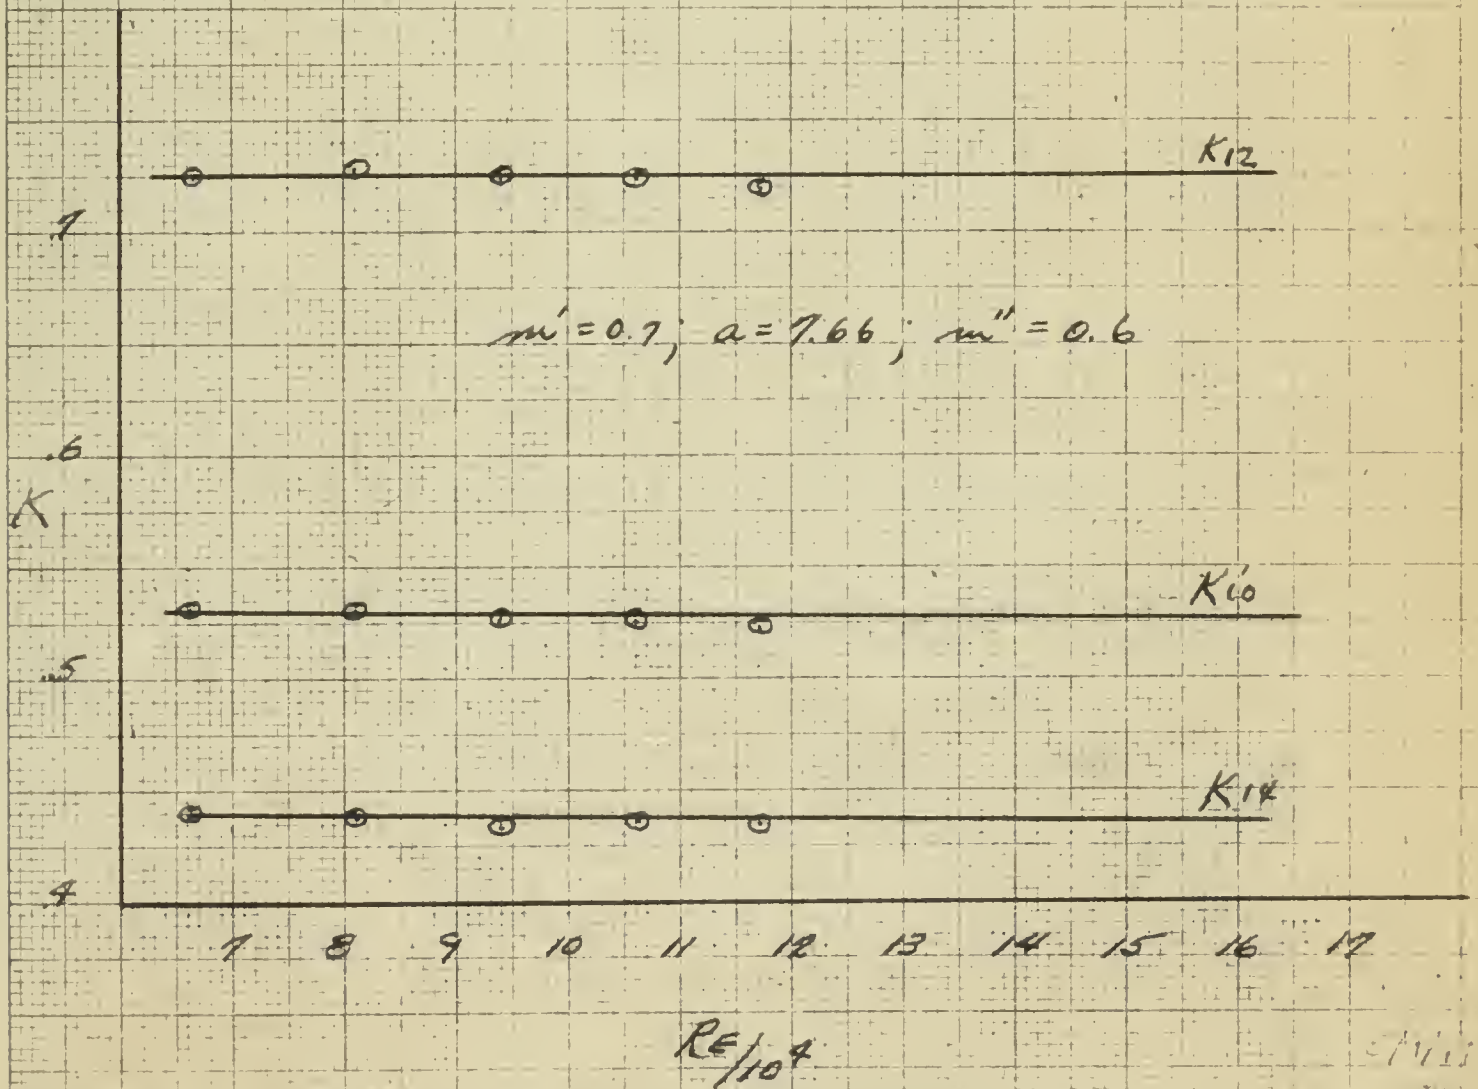 K12
.7
m' = 0.7; a = 7.66; m" = 0.6
.6
K
K10
.5
K14
.4
7 8 9 10 11 12 13 14 15 16 17
RE/10⁴